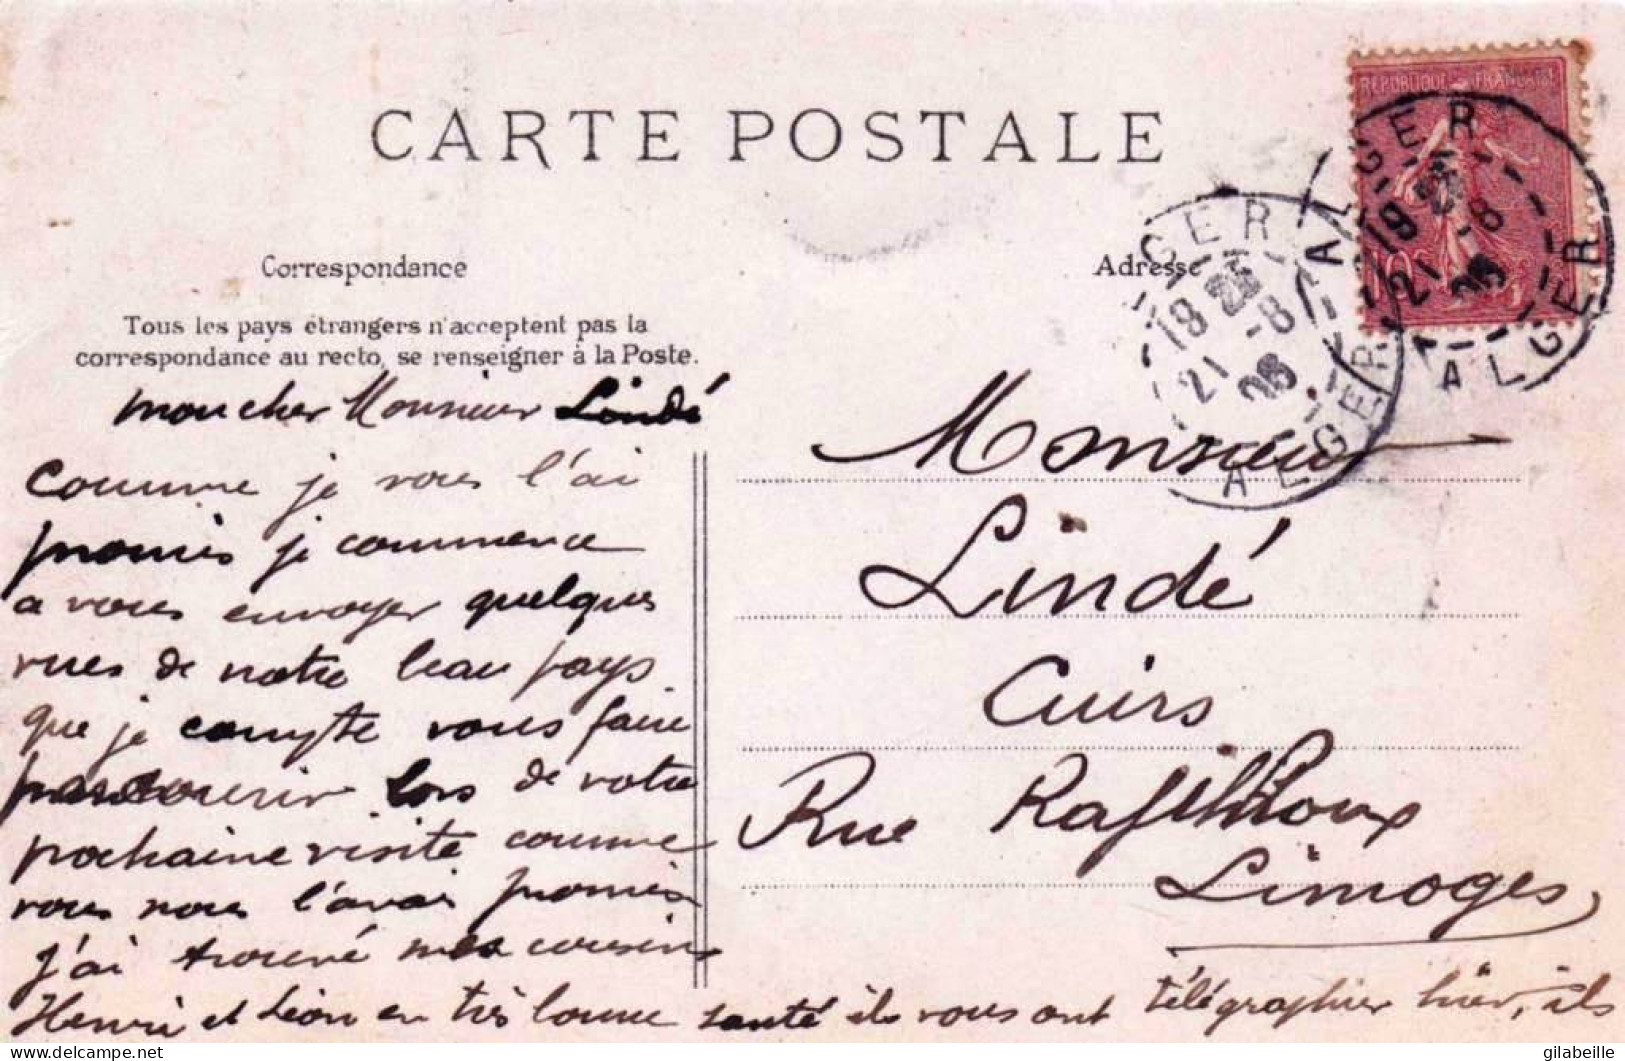 CARTE POSTALE
REPUBLIQUE FRANÇAISE
10c
ALGER
19 25
21 -8
06
ALGER
ALGER
19 25
21 -8
06
ALGER
Correspondance
Adresse
Tous les pays étrangers n'acceptent pas la
correspondance au recto, se renseigner à la Poste.
mon cher Monsieur Lindé
Comme je vous l'ai
promis je commence
a vous envoyer quelques
vues de notre beau pays
que je compte vous faire
parcourir lors de votre
prochaine visite comme
vous nous l'avais promis
j'ai trouvé mes cousins
Henri et Léon en très bonne santé ils vous ont télégraphier hier, ils
Monsieur
Lindé
Cuirs
Rue Rafilhoux
Limoges
delcampe.net
gilabeille